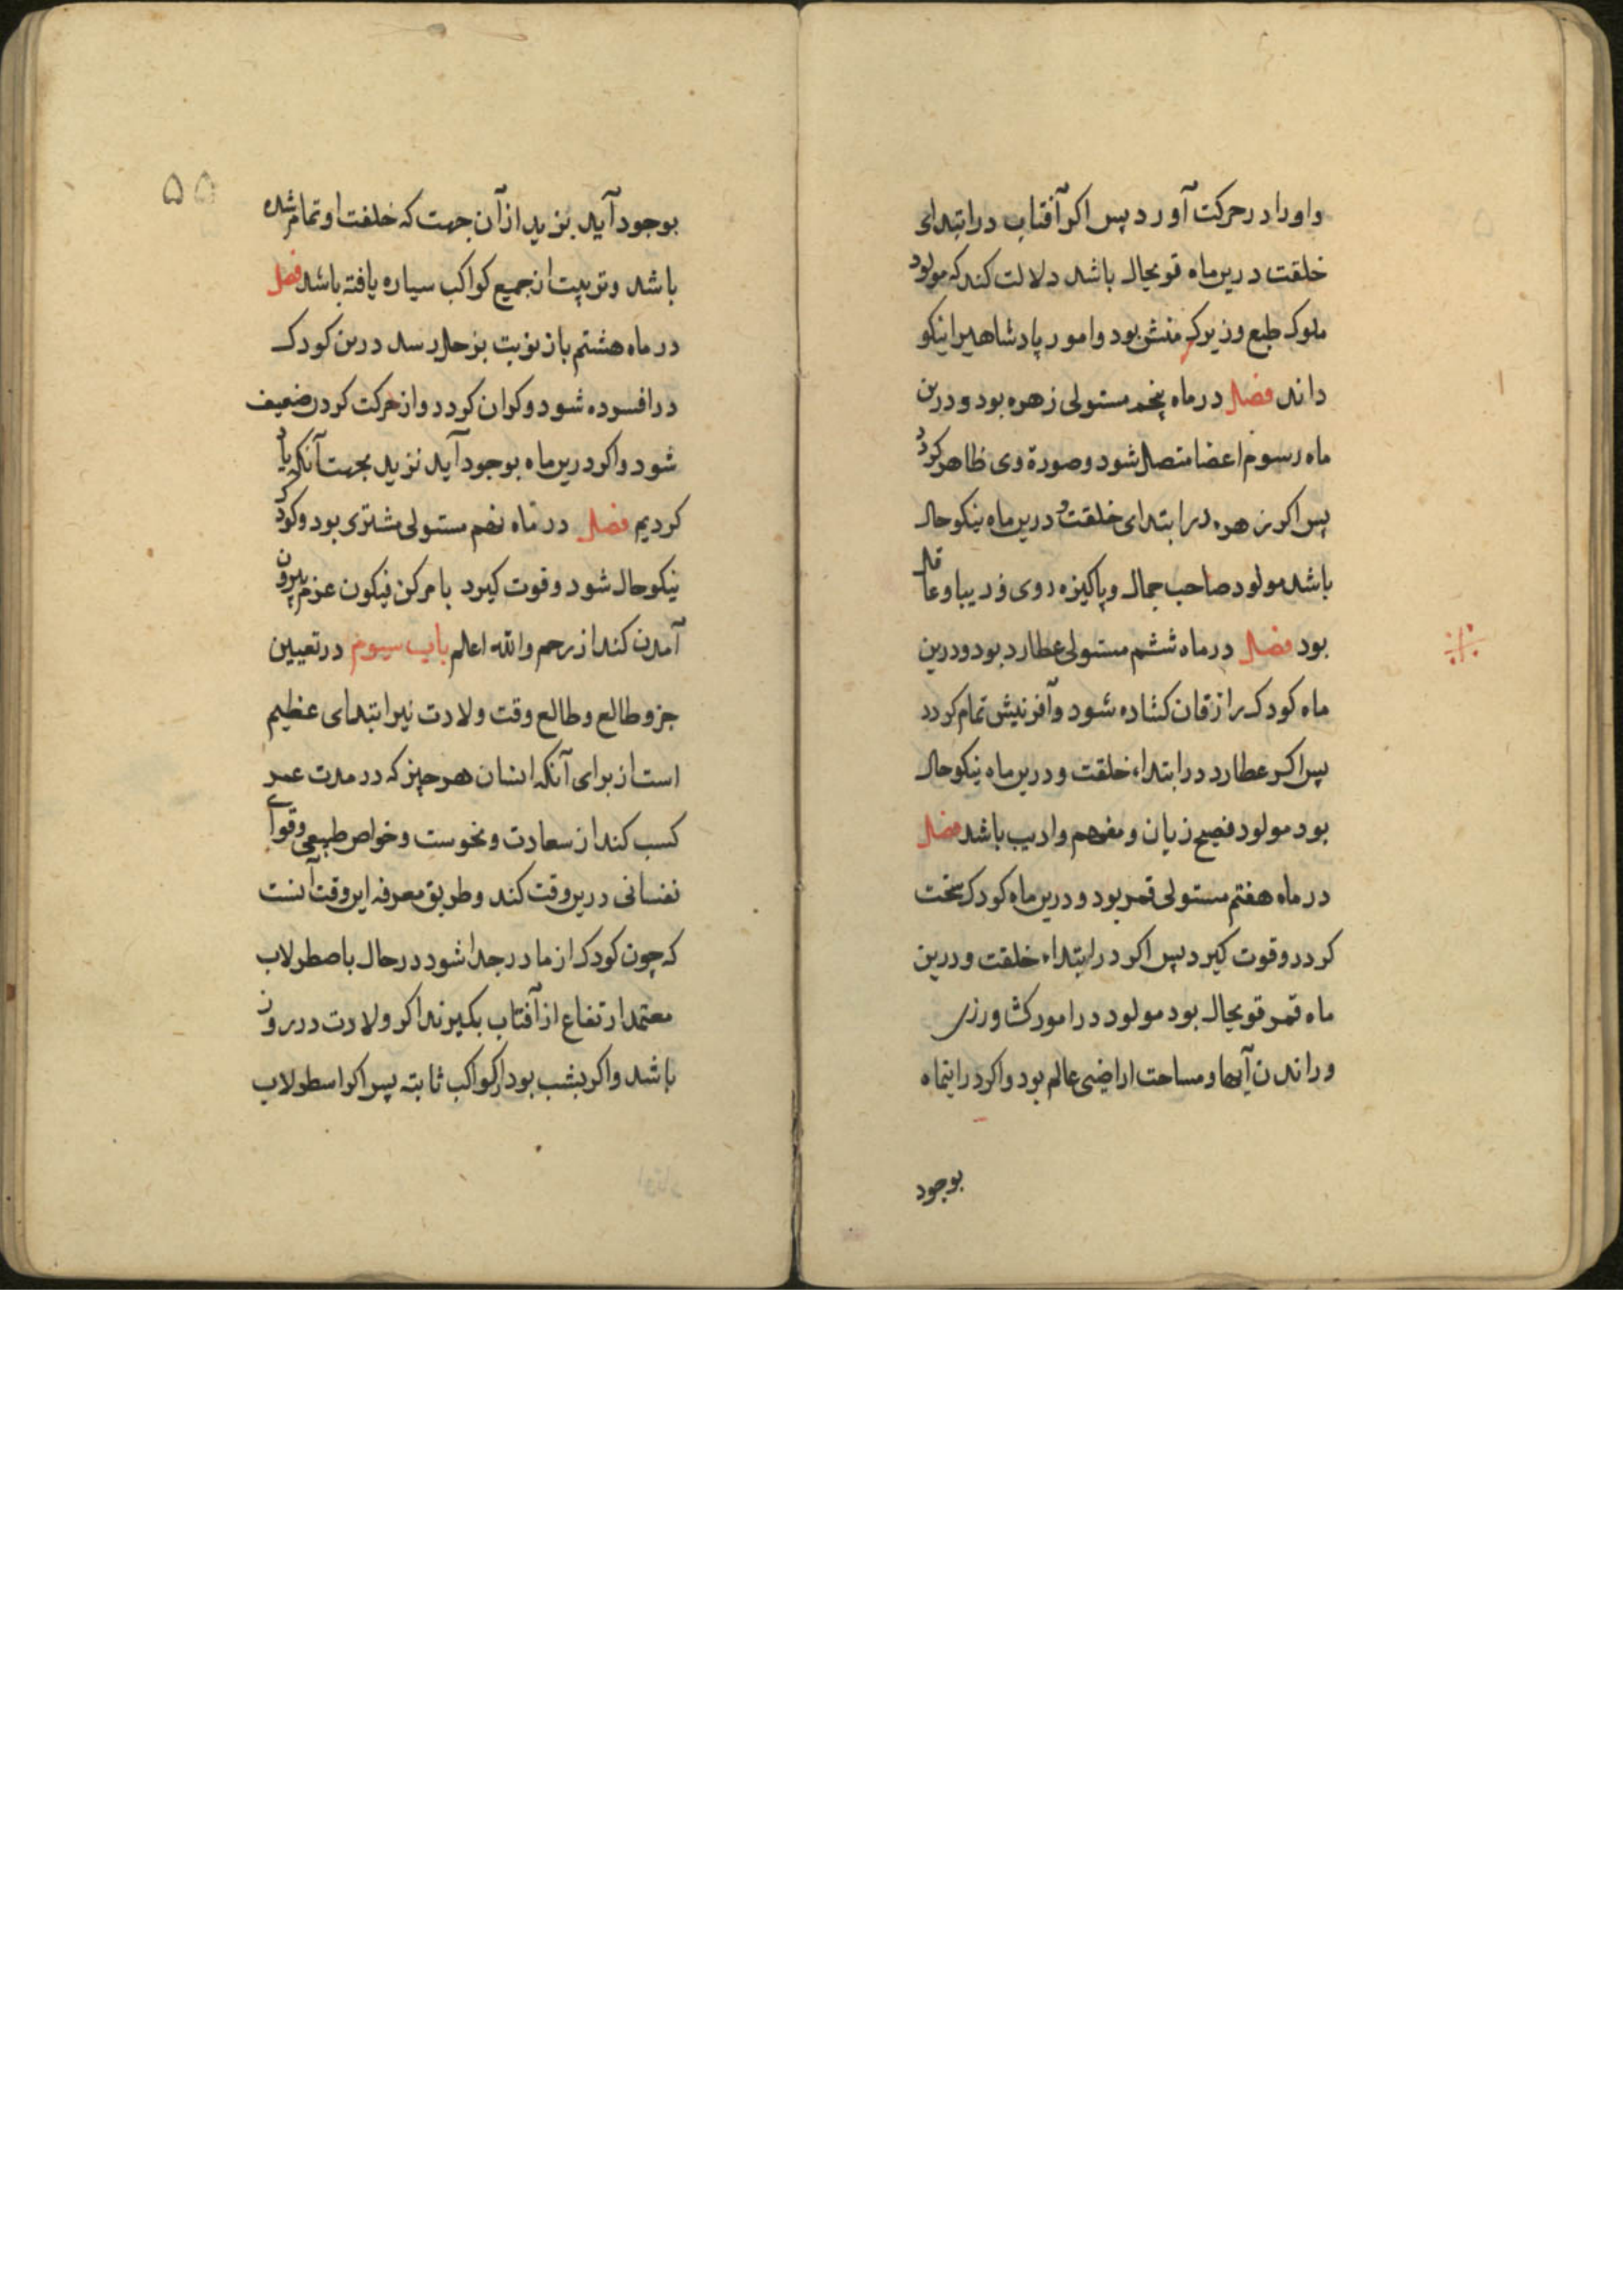 واورا در حرکت آورد پس اکر آفتاب در ابتدای
خلقت درین ماه قویحال باشد دلالت کند که مولود
ملوک طبع وزیرک منش بود وامور پادشاهیرا نیکو
داند فصل در ماه پنجم مستولی زهره بود ودرین
ماه رسوم اعضا متصل شود وصورة وی ظاهر کردد
پس اکر زهره در ابتدای خلقت و درین ماه نیکو حال
باشد مولود صاحب جمال وپاکیزه روی وزیبا وعاقل
بود فصل در ماه ششم مستولی عطارد بود ودرین
ماه کودک را زقان کشاده شود وآفرنیش تمام کردد
پس اکر عطارد در ابتداء خلقت ودرین ماه نیکو حال
بود مولود فصیح زبان ومفهم وادیب باشد فصل
در ماه هفتم مستولی قمر بود ودرین ماه کودک سخت
کردد وقوت کیرد پس اکر در ابتداء خلقت ودرین
ماه قمر قویحال بود مولود در امور کشاورزی
وراندن آبها ومساحت اراضی عالم بود واکر در اینماه
بوجود
۵۵
بوجود آید بزید از آن جهت که خلقت او تمام شده
باشد وتربیت از جمیع کواکب سیاره یافته باشد فصل
در ماه هشتم باز نوبت بزحل رسد درین کودک
در افسرده شود وکران کردد واز حرکت کردن ضعیف
شود واکر درین ماه بوجود آید نزید بجهت آنکه یاد
کردیم فصل در ماه نهم مستولی مشتری بود وکودک
نیکو حال شود وقوت کیرد بامر کن فیکون عزم بیرون
آمدن کند از رحم والله اعلم باب سیوم در تعیین
جزو طالع وطالع وقت ولادت نیر ابتدای عظیم
است از برای آنکه انسان هر چیز که در مدت عمر
کسب کند از سعادت ونحوست وخواص طبیعی وقوای
نفسانی درین وقت کند وطریق معرفه این وقت آنست
که چون کودک از مادر جدا شود در حال باصطرلاب
معتمد ارتفاع از آفتاب بکیرند اکر ولادت در روز
باشد واکر بشب بود از کواکب ثابته پس اکر اسطرلاب